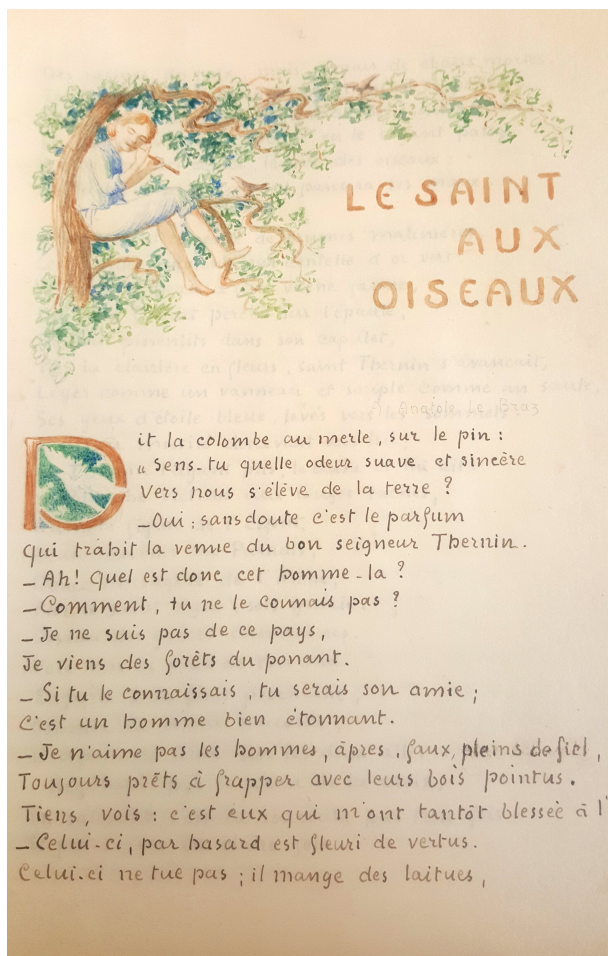 LE SAINT
AUX
OISEAUX
Anatole Le Braz
Dit la colombe au merle, sur le pin :
" Sens-tu quelle odeur suave et sincère
Vers nous s'élève de la terre ?
_Oui ; sans doute c'est le parfum
qui trahit la venue du bon seigneur Thernin.
_ Ah! Quel est donc cet homme-la ?
_Comment, tu ne le connais pas ?
_ Je ne suis pas de ce pays,
Je viens des forêts du ponant.
_ Si tu le connaissais, tu serais son amie ;
C'est un homme bien étonnant.
_ Je n'aime pas les hommes, âpres, faux, pleins de fiel,
Toujours prêts à frapper avec leurs bois pointus.
Tiens, vois : c'est eux qui m'ont tantôt blessée à l'
_ Celui-ci, par hasard est fleuri de vertus.
Celui-ci ne tue pas ; il mange des laitues,